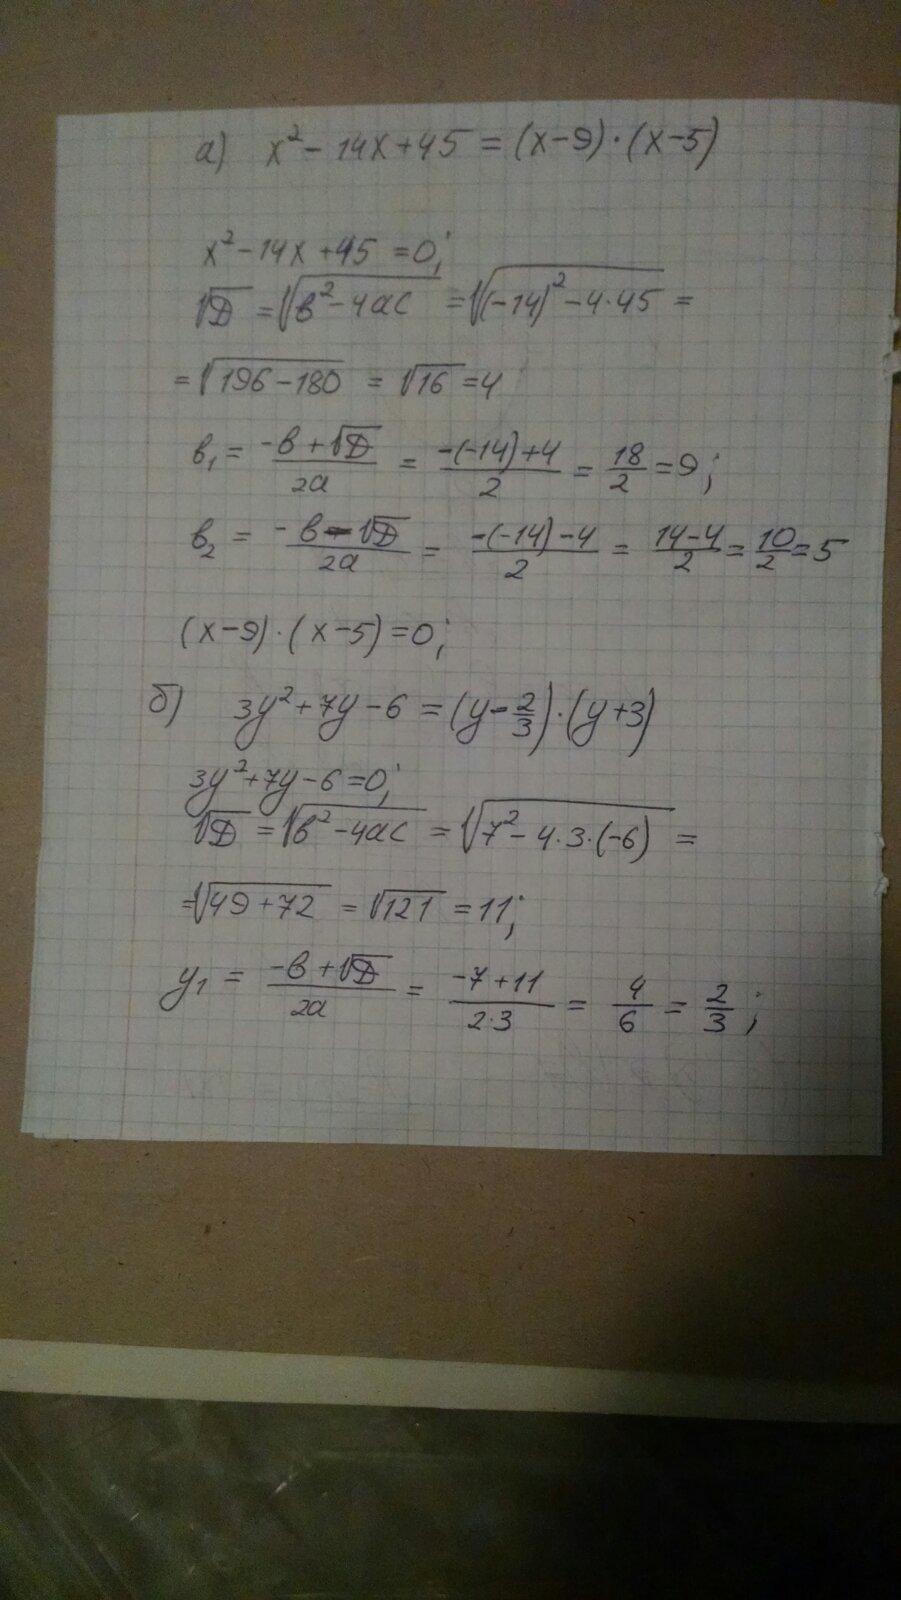 а) x² - 14x + 45 = (x-9)·(x-5)
x² - 14x + 45 = 0;
√D = √(в² - 4ac) = √((-14)² - 4·45) =
= √(196 - 180) = √16 = 4
в₁ = (-в + √D)/2a = (-(-14)+4)/2 = 18/2 = 9;
в₂ = (-в - √D)/2a = (-(-14)-4)/2 = (14-4)/2 = 10/2 = 5
(x-9)·(x-5) = 0;
б) 3y² + 7y - 6 = (y - 2/3)·(y+3)
3y² + 7y - 6 = 0;
√D = √(в² - 4ac) = √(7² - 4·3·(-6)) =
= √(49 + 72) = √121 = 11;
y₁ = (-в + √D)/2a = (-7 + 11)/2·3 = 4/6 = 2/3;